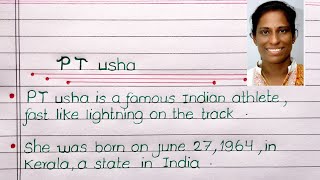 PT usha
PT usha is a famous Indian athlete,
fast like lightning on the track.
She was born on june 27,1964,in
Kerala,a state in India.